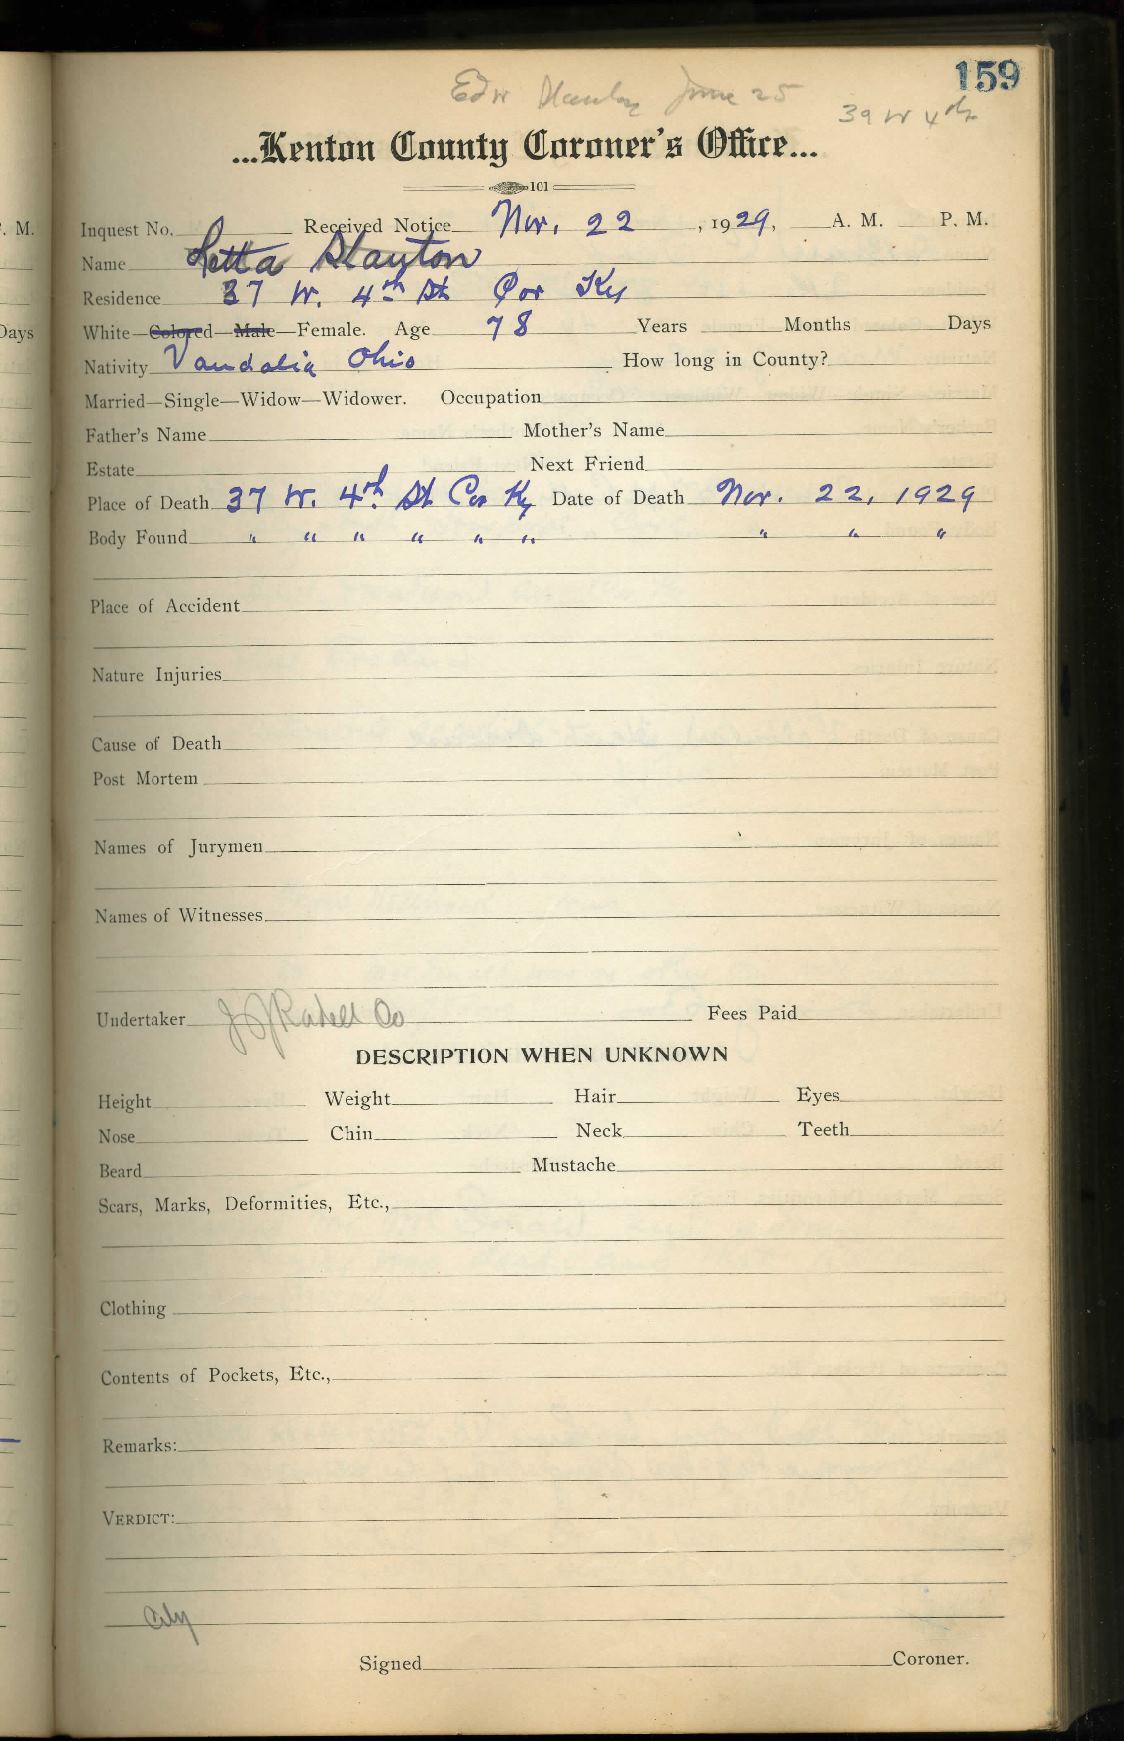 159
Edw Stanley June 25
39 W 4th
...Kenton County Coroner's Office...
101
Inquest No. Received Notice Nov. 22, 1929, A. M. P. M.
Name Letta Stanton
Residence 37 W. 4th St Cov Ky
White—Colored—Male—Female. Age 78 Years Months Days
Nativity Vandalia Ohio How long in County?
Married—Single—Widow—Widower. Occupation
Father's Name Mother's Name
Estate Next Friend
Place of Death 37 W. 4th St Cov Ky Date of Death Nov. 22, 1929
Body Found " " " " " " " " "
Place of Accident
Nature Injuries
Cause of Death
Post Mortem
Names of Jurymen
Names of Witnesses
Undertaker Co Fees Paid
DESCRIPTION WHEN UNKNOWN
Height Weight Hair Eyes
Nose Chin Neck Teeth
Beard Mustache
Scars, Marks, Deformities, Etc.,
Clothing
Contents of Pockets, Etc.,
Remarks:
VERDICT:
City
Signed Coroner.
. M.
Days